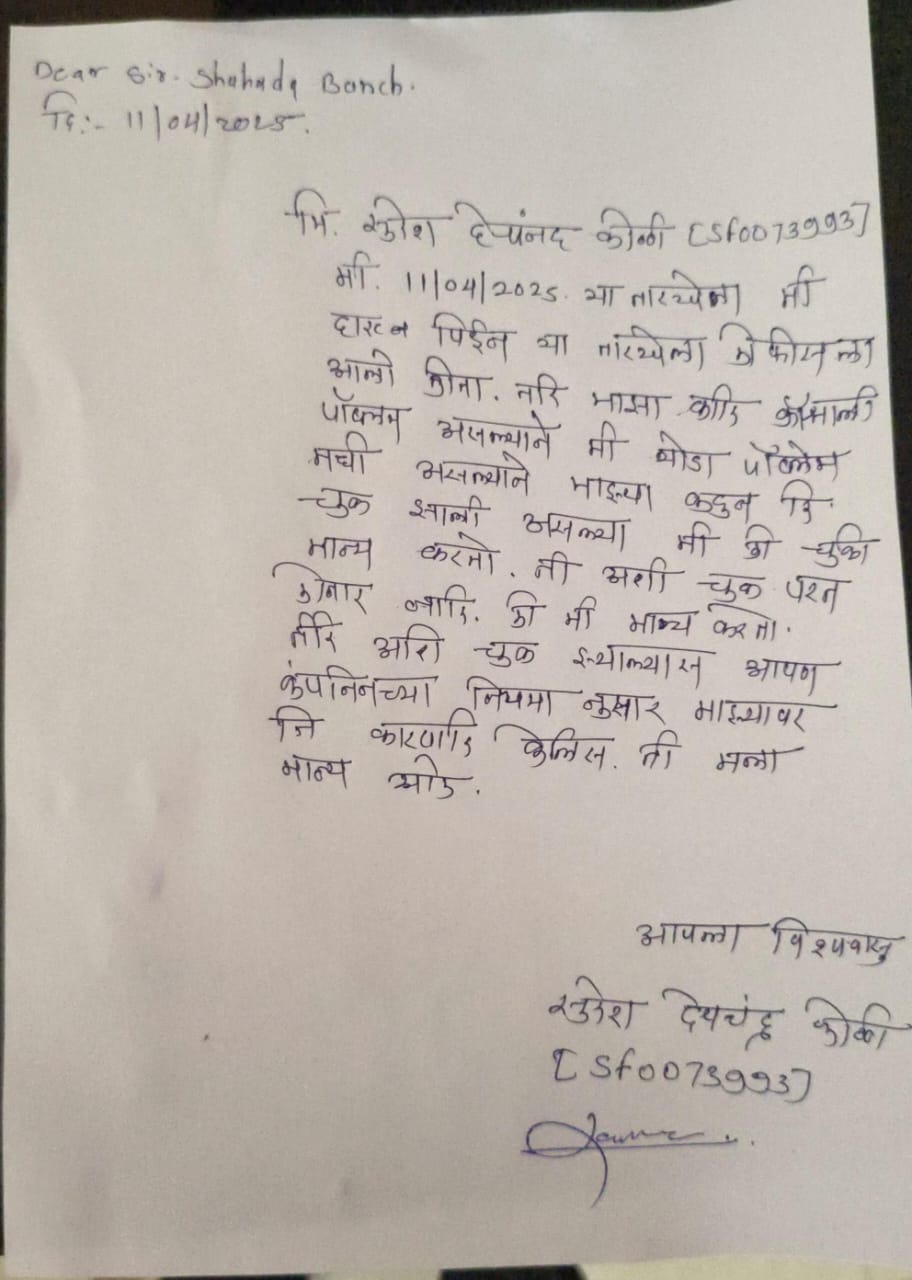 Dear Sir. Shahada Banch.
दि:- 11/04/2025.
मि. राकेश देयचंनद कोळी [Sf0073993]
मी. 11/04/2025. या तारखेला मी
दारू पिईन या तारखेला ऑफीसला
आलो होतो. तरि माझा काहि फॅमीली
प्रॉब्लम असल्याने मी थोडा प्रॉब्लेम
मधी असल्याने माझ्या कडुन हि
चुक झाली असल्या मी ही चुकी
मान्य करतो. ती अशी चुक परत
होनार नाहि. ही मी मान्य करतो.
तरि अशि चुक झ्याल्यास आपण
कंपनिनच्या नियमा नुसार माझ्यावर
जि कारवाहि केलिस. ती मला
मान्य आहे.
आपला विश्वासु
देयचंद्र कोळी
[Sf0073993]